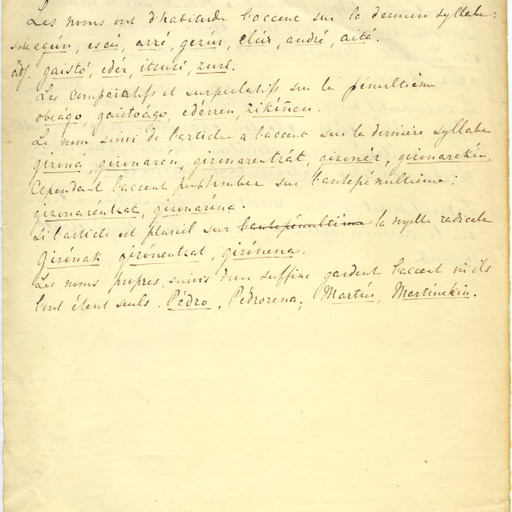 Les noms ont d'habitude l'accent sur la dernière syllabe:
subs. egún, escú, arré, gezúr, elúr, andré, aitá.
adj. gaistó, edér, itsusí, zurí.
Les comparatifs et surperlatifs sur la pénultième
obeágo, gaistoágo, edérren, zikíñen.
Le nom suivi de l'article a l'accent sur la dernière syllabe
gizoná, gizonarén, gizonarentzát, gizonéz, gizonarekín.
Cependant l'accent peut tomber sur l'antepénultième:
gizonaréntzat, gizonaréna.
Si l'article est pluriel sur l'antepénultième la syelle radicale
Gizónak, gizónentzat, gizónena.
Les noms propres, suivis d'un suffixe gardent l'accent où ils
l'ont étant seuls. Pédro, Pédrorena, Martín, Martínekin.